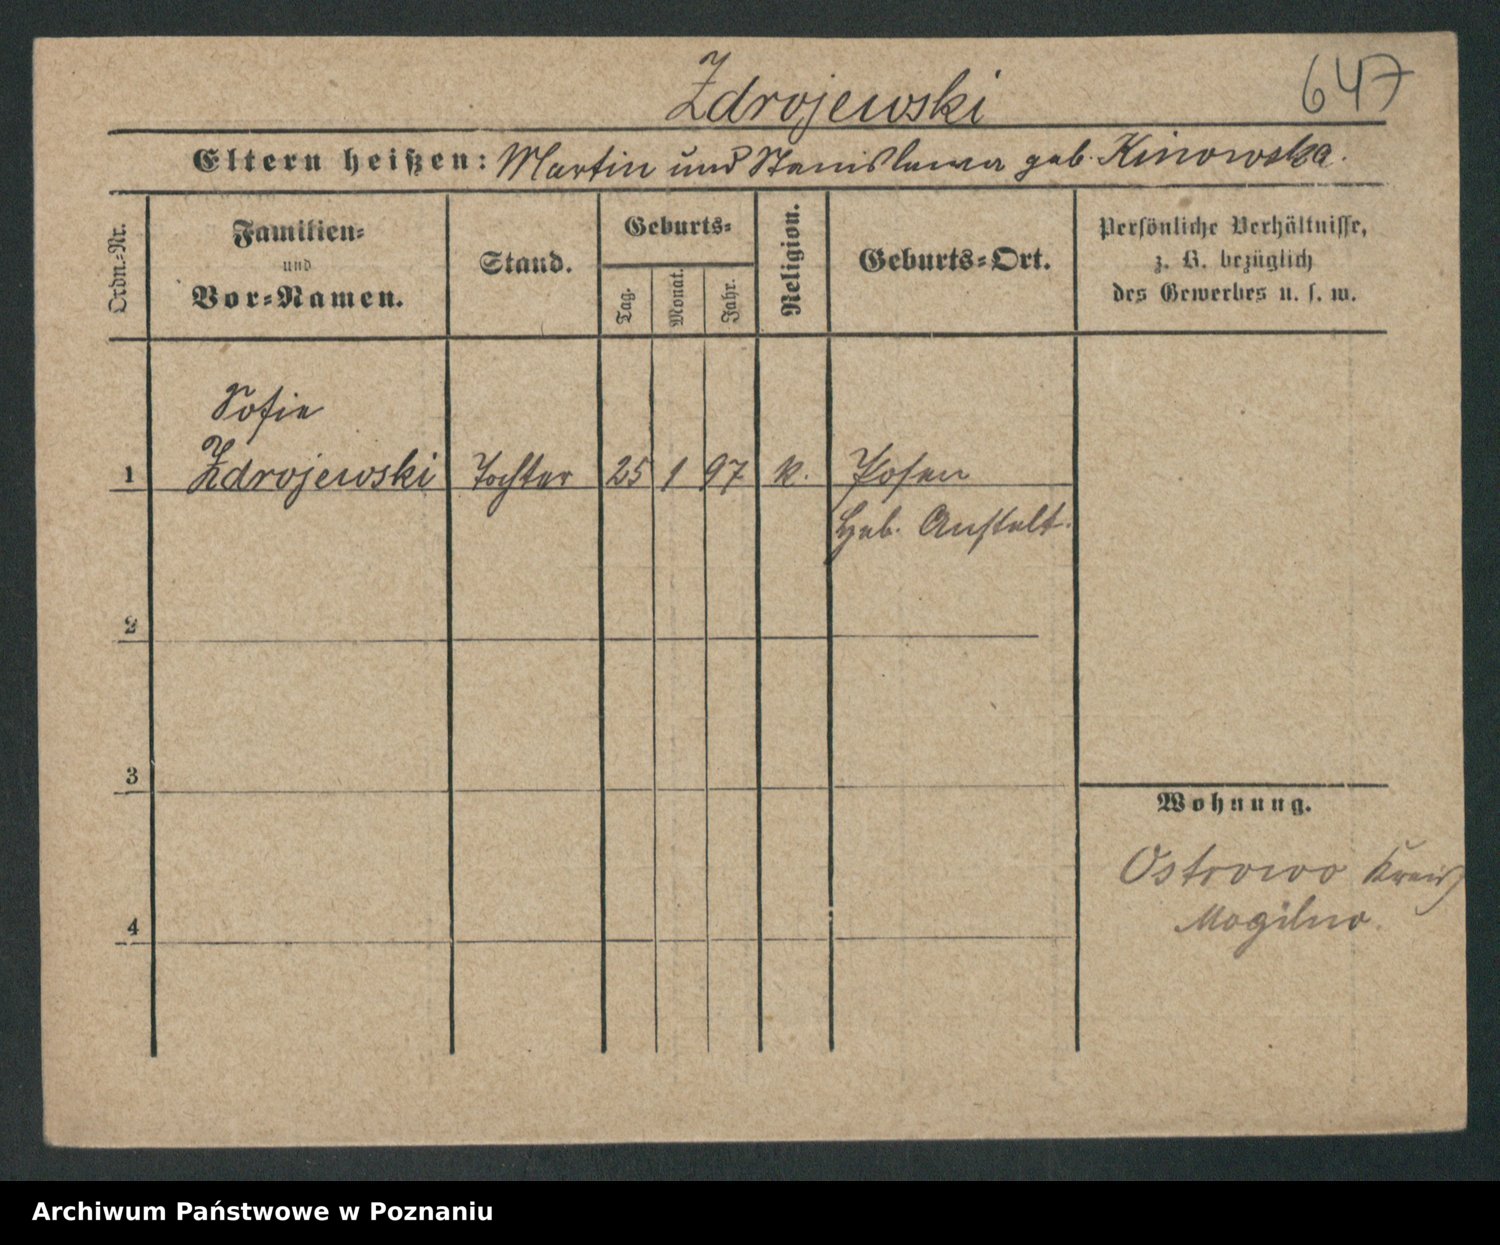 Zdrojewski
647
Eltern heißen: Martin und Stanislawa geb. Kinowska.
Ordn.-Nr.
Familien-
und
Vor-Namen.
Stand.
Geburts-
Tag.
Monat.
Jahr.
Religion.
Geburts-Ort.
Persönliche Verhältnisse,
z. B. bezüglich
des Gewerbes u. s. w.
Sofie
1 Zdrojewski Tochter 25 1 97 k. Posen
Heb. Anstalt.
2
3
Wohnung.
Ostrowo Kreis
Mogilno.
4
Archiwum Państwowe w Poznaniu